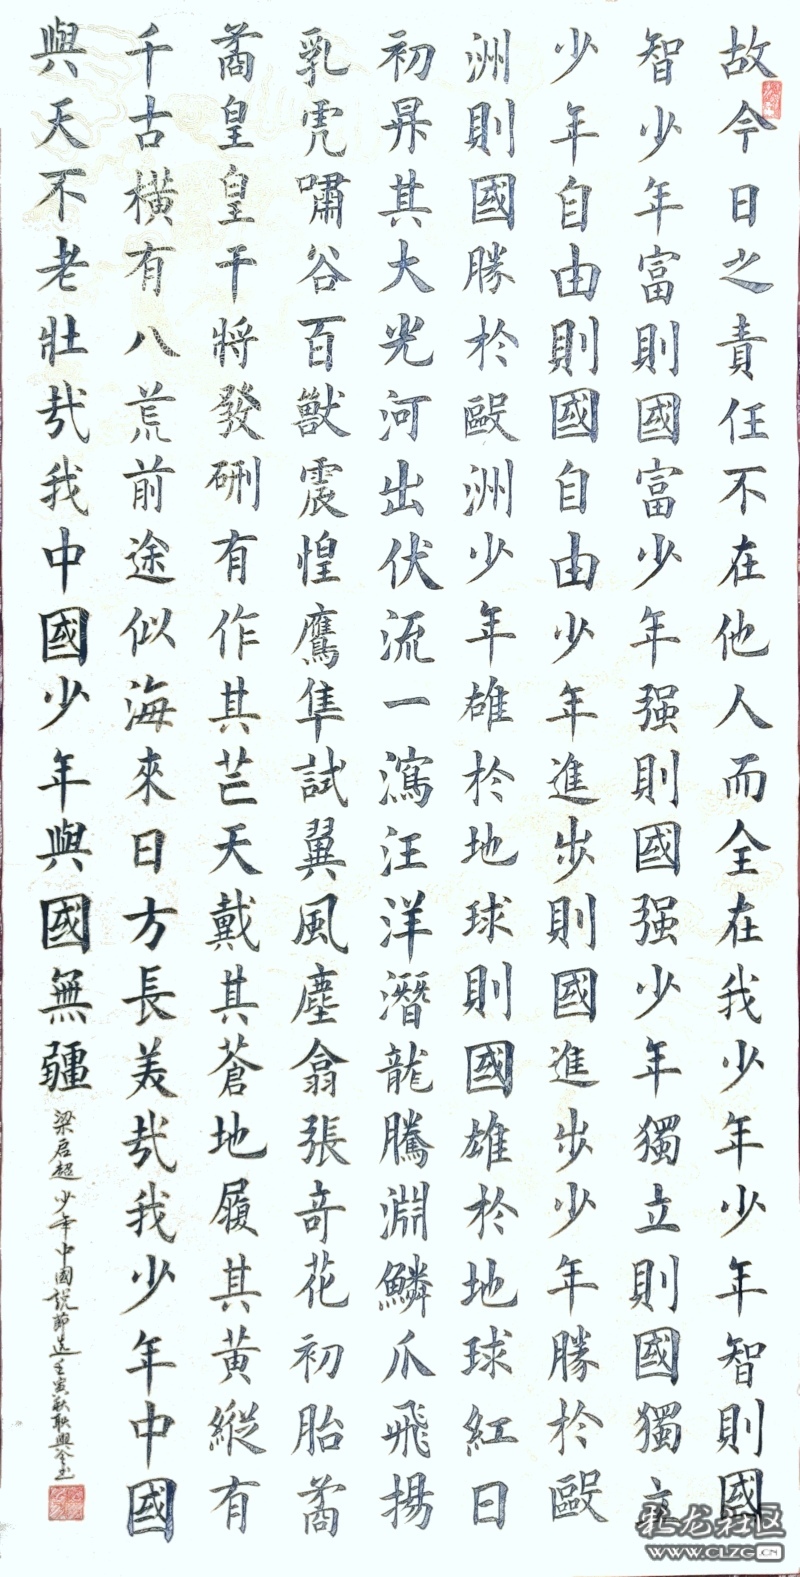 故今日之責任不在他人而全在我少年少年智則國
智少年富則國富少年强則國强少年獨立則國獨立
少年自由則國自由少年進步則國進步少年勝於毆
洲則國勝於毆洲少年雄於地球則國雄於地球紅日
初昇其大光河出伏流一瀉汪洋潛龍騰淵鱗爪飛揚
乳虎嘯谷百獸震惶鷹隼試翼風塵翕張奇花初胎矞
矞皇皇干將發硎有作其芒天戴其蒼地履其黃縱有
千古橫有八荒前途似海來日方長美哉我少年中國
與天不老壯哉我中國少年與國無疆
梁启超少年中國說節选壬寅秋耿興
龙社区
WWW.CLZG.CN